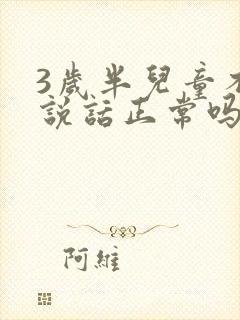 3歲半兒童不
說話正常吗
阿維